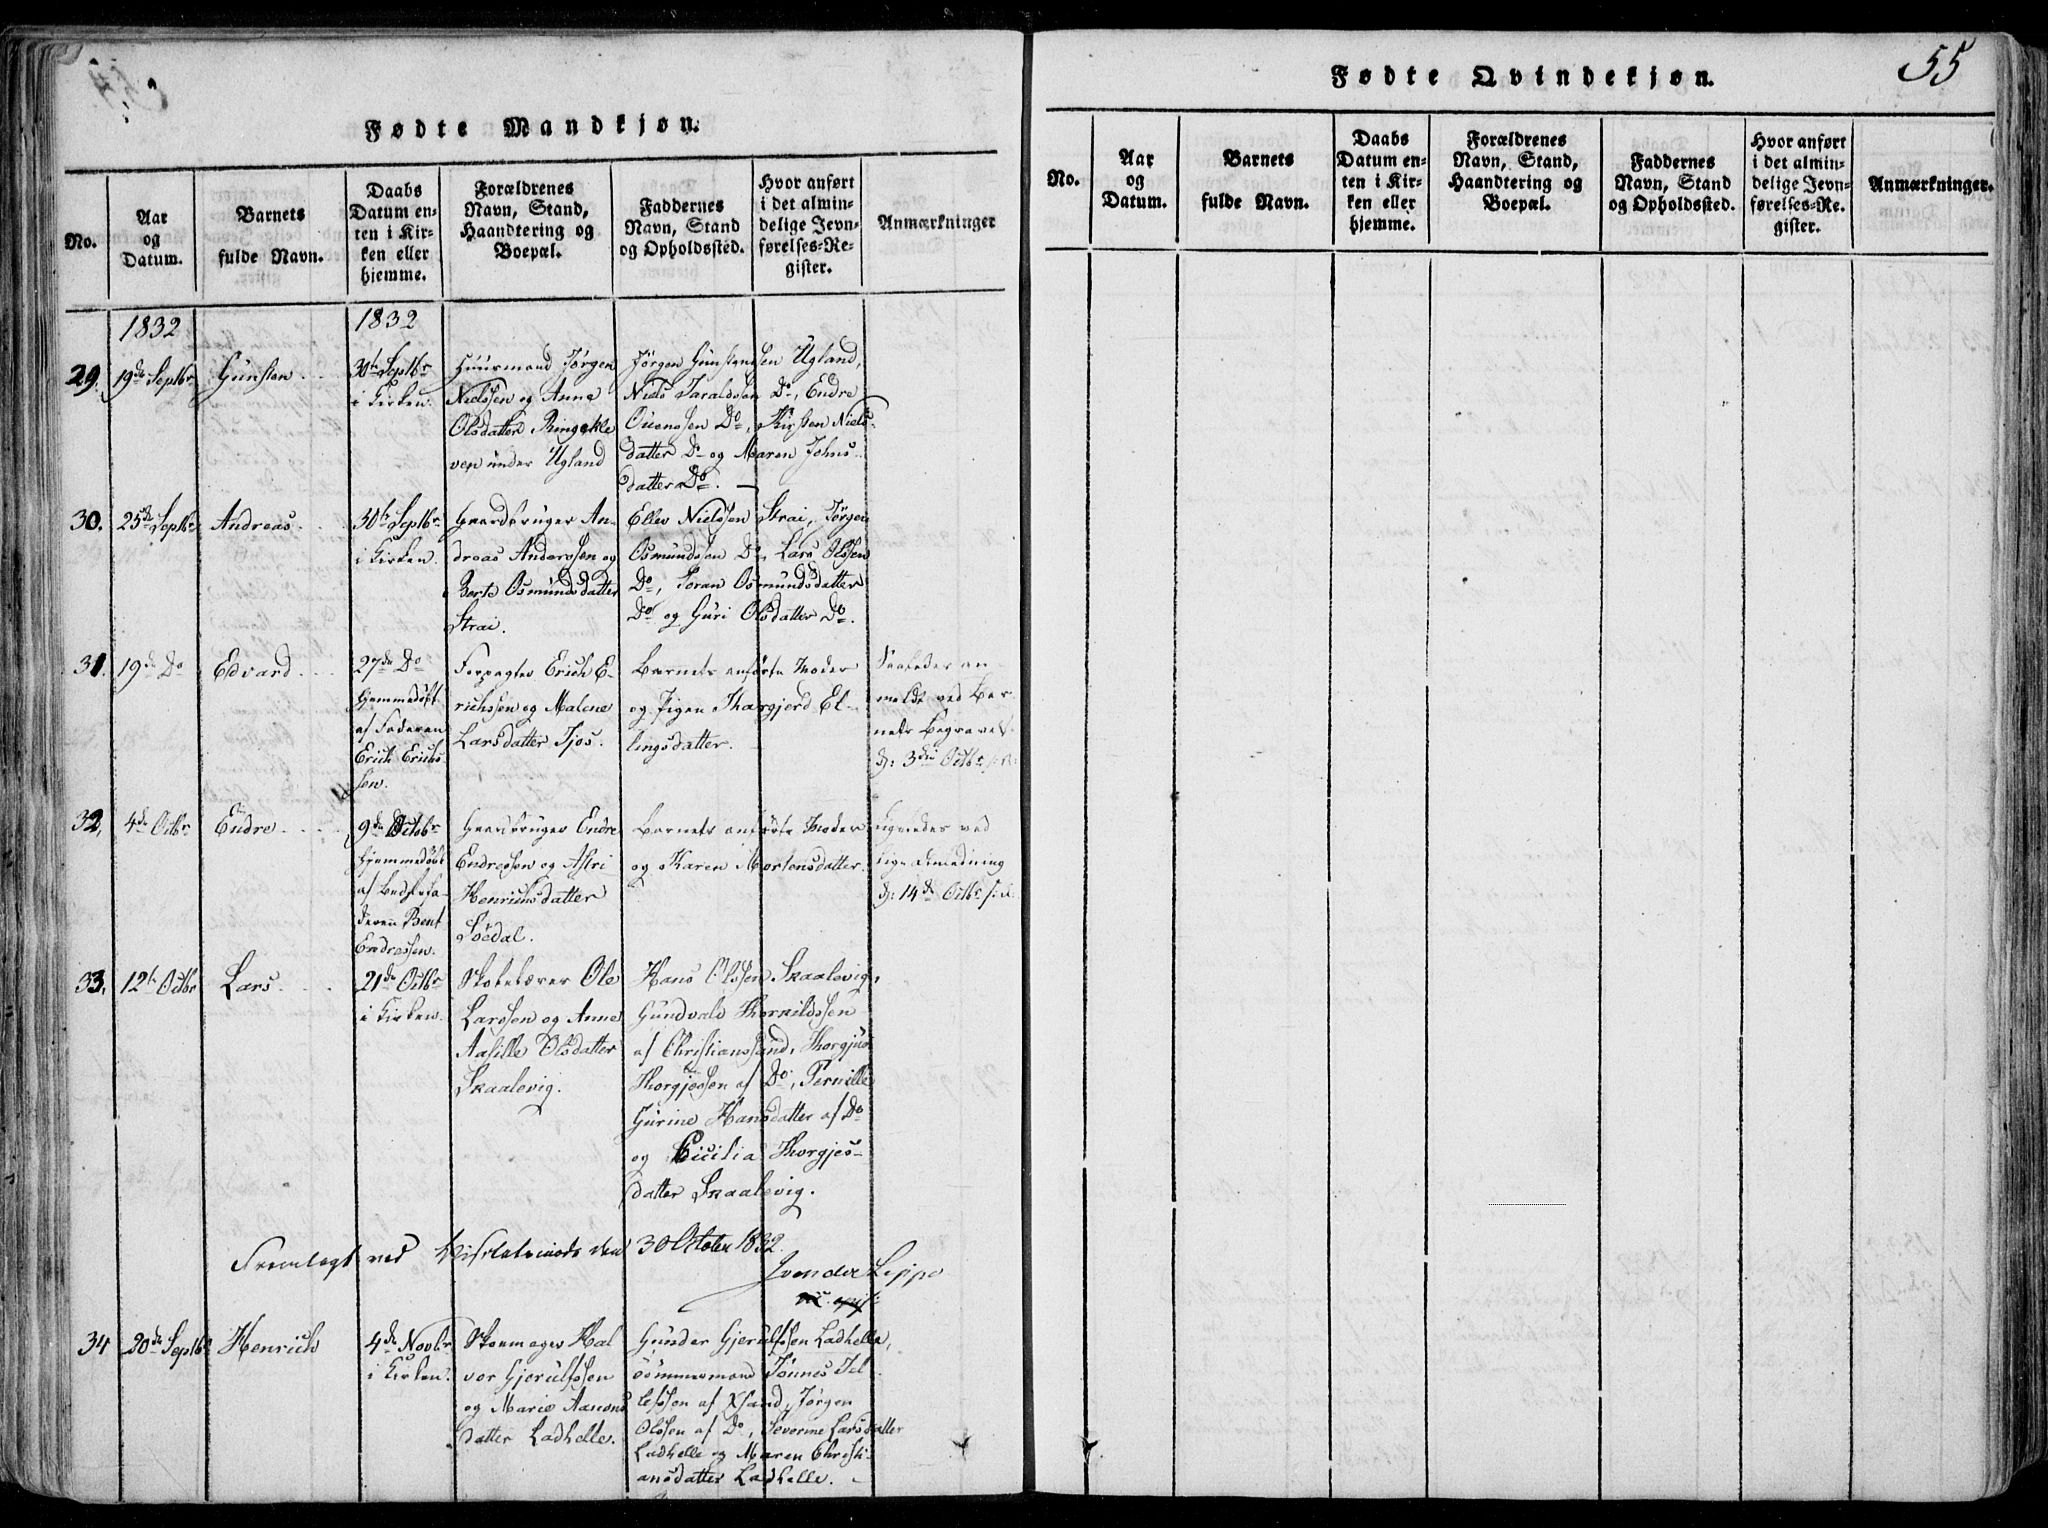 55
Fødte Mandkjøn.
No.
Aar
og
Datum.
Barnets
fulde Navn.
Daabs
Datum en-
ten i Kir-
ken eller
hjemme.
Forældrenes
Navn, Stand,
Haandtering og
Boepæl.
Faddernes
Navn, Stand
og Opholdssted.
Hvor anført
i det almin-
delige Jevn-
førelses-Re-
gister.
Anmærkninger
1832
1832
29.
19de Septbr
Gunsten
30te Septbr
i Kirken.
Huusmand Jørgen
Nielssen og Anne
Olsdatter Ringekle
ven under Ugland
Jørgen Gunstenssen Ugland,
Niels Taraldssen Do, Endre
Ouenssen Do, Kirsten Niels-
datter Do og Maren Johns-
datter Do.
30.
25de Septbr
Andreas
30te Septbr
i Kirken.
Gaardbruger An-
dreas Anderssen og
Berte Osmundsdatter
Strai.
Ellev Nielssen Strai, Jørgen
Osmundssen Do, Lars Olssen
Do, Soran Osmundsdatter
Do og Guri Olsdatter Do.
31.
19de Do
Edvard
27de Do
Hjemmedøbt
af Faderen
Erich Erichs-
sen.
Forpagter Erich E-
richssen og Malene
Larsdatter Tjos.
Barnets anførte Moder
og Pigen Thorgjerd El-
lingsdatter.
an-
meldt ved Bar-
nets Begravel-
d: 3die Octbr
32.
4de Octbr
Endre
9de Octobr
Hjemmedøbt
af Bedstefa-
deren Bent
Endressen.
Gaardbruger Endre
Endressen og Astri
Henrichsdatter
Søedal.
Barnets anførte Moder
og Karen Mortensdatter.
ved
d: 14de Octbr
33.
12te Octbr
Lars
21de Octbr
i Kirken.
Skolelærer Ole
Larssen og Anne
Aasille Olsdatter
Skaalevig.
Hans Olssen Skaalevig,
Gundvald Thorkildssen
af Christianssand, Thorgjus
Thorgjussen af Do, Pernille
Gurine Hansdatter af Do
og Cicilia Thorgjes-
datter Skaalevig.
Fremlagt ved Visitatsmode den 30 October 1832.
J von der Lippe
34
20de Septbr
Henrich
4de Novbr
i Kirken.
Skoemager Hal
vor Gjerulfssen
og Marie Aanons
datter Ladhelle.
Gunder Gjerulfssen Ladhelle,
Tømmermand Tønnes Tel
lefssen af Xsand, Jørgen
Olssen af Do, Severine Larsdatter
Ladhelle og Maren Christi-
ansdatter Ladhelle.
Fødte Qvindekjøn.
No.
Aar
og
Datum.
Barnets
fulde Navn.
Daabs
Datum en-
ten i Kir-
ken eller
hjemme.
Forældrenes
Navn, Stand,
Haandtering og
Boepæl.
Faddernes
Navn, Stand
og Opholdssted.
Hvor anført
i det almin-
delige Jevn-
førelses-Re-
gister.
Anmærkninger.